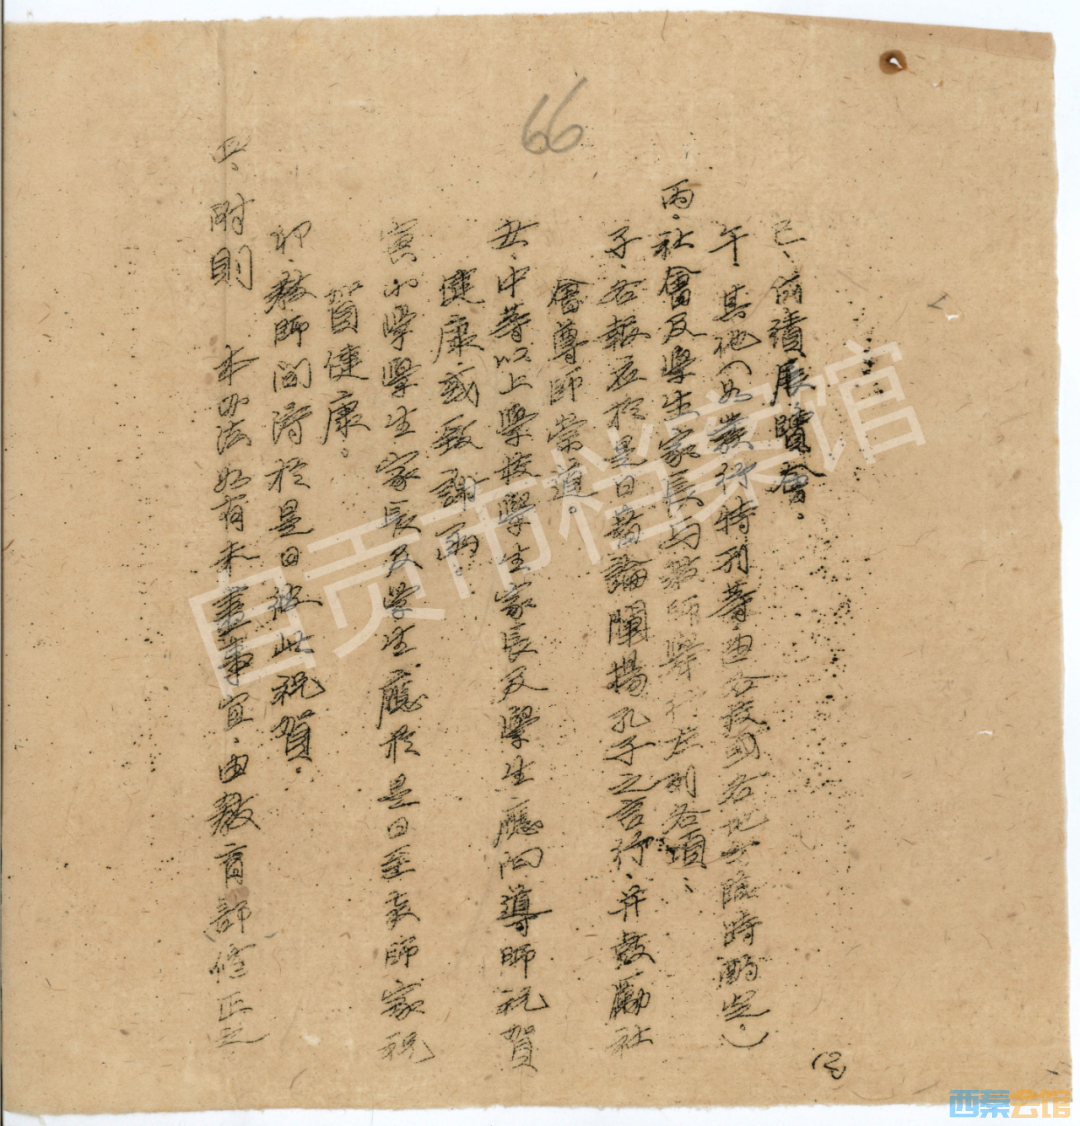 66
巳、成績展覽會。
午、其他(如發行特刊等由各校或各地方臨時酌定。)
丙、社會及學生家長与教師舉行左列各項：
子、各報應於是日著論闡揚孔子之言行、并鼓勵社
會尊師崇道。
丑、中等以上學校學生家長及學生應向導師祝賀
健康或致謝函。
寅、小學學生家長及學生應於是日至教師家祝
賀健康。
卯、教師間得於是日彼此祝賀。
附則 本办法如有未盡事宜、由教育部修正之
自贡市档案馆
西秦会馆